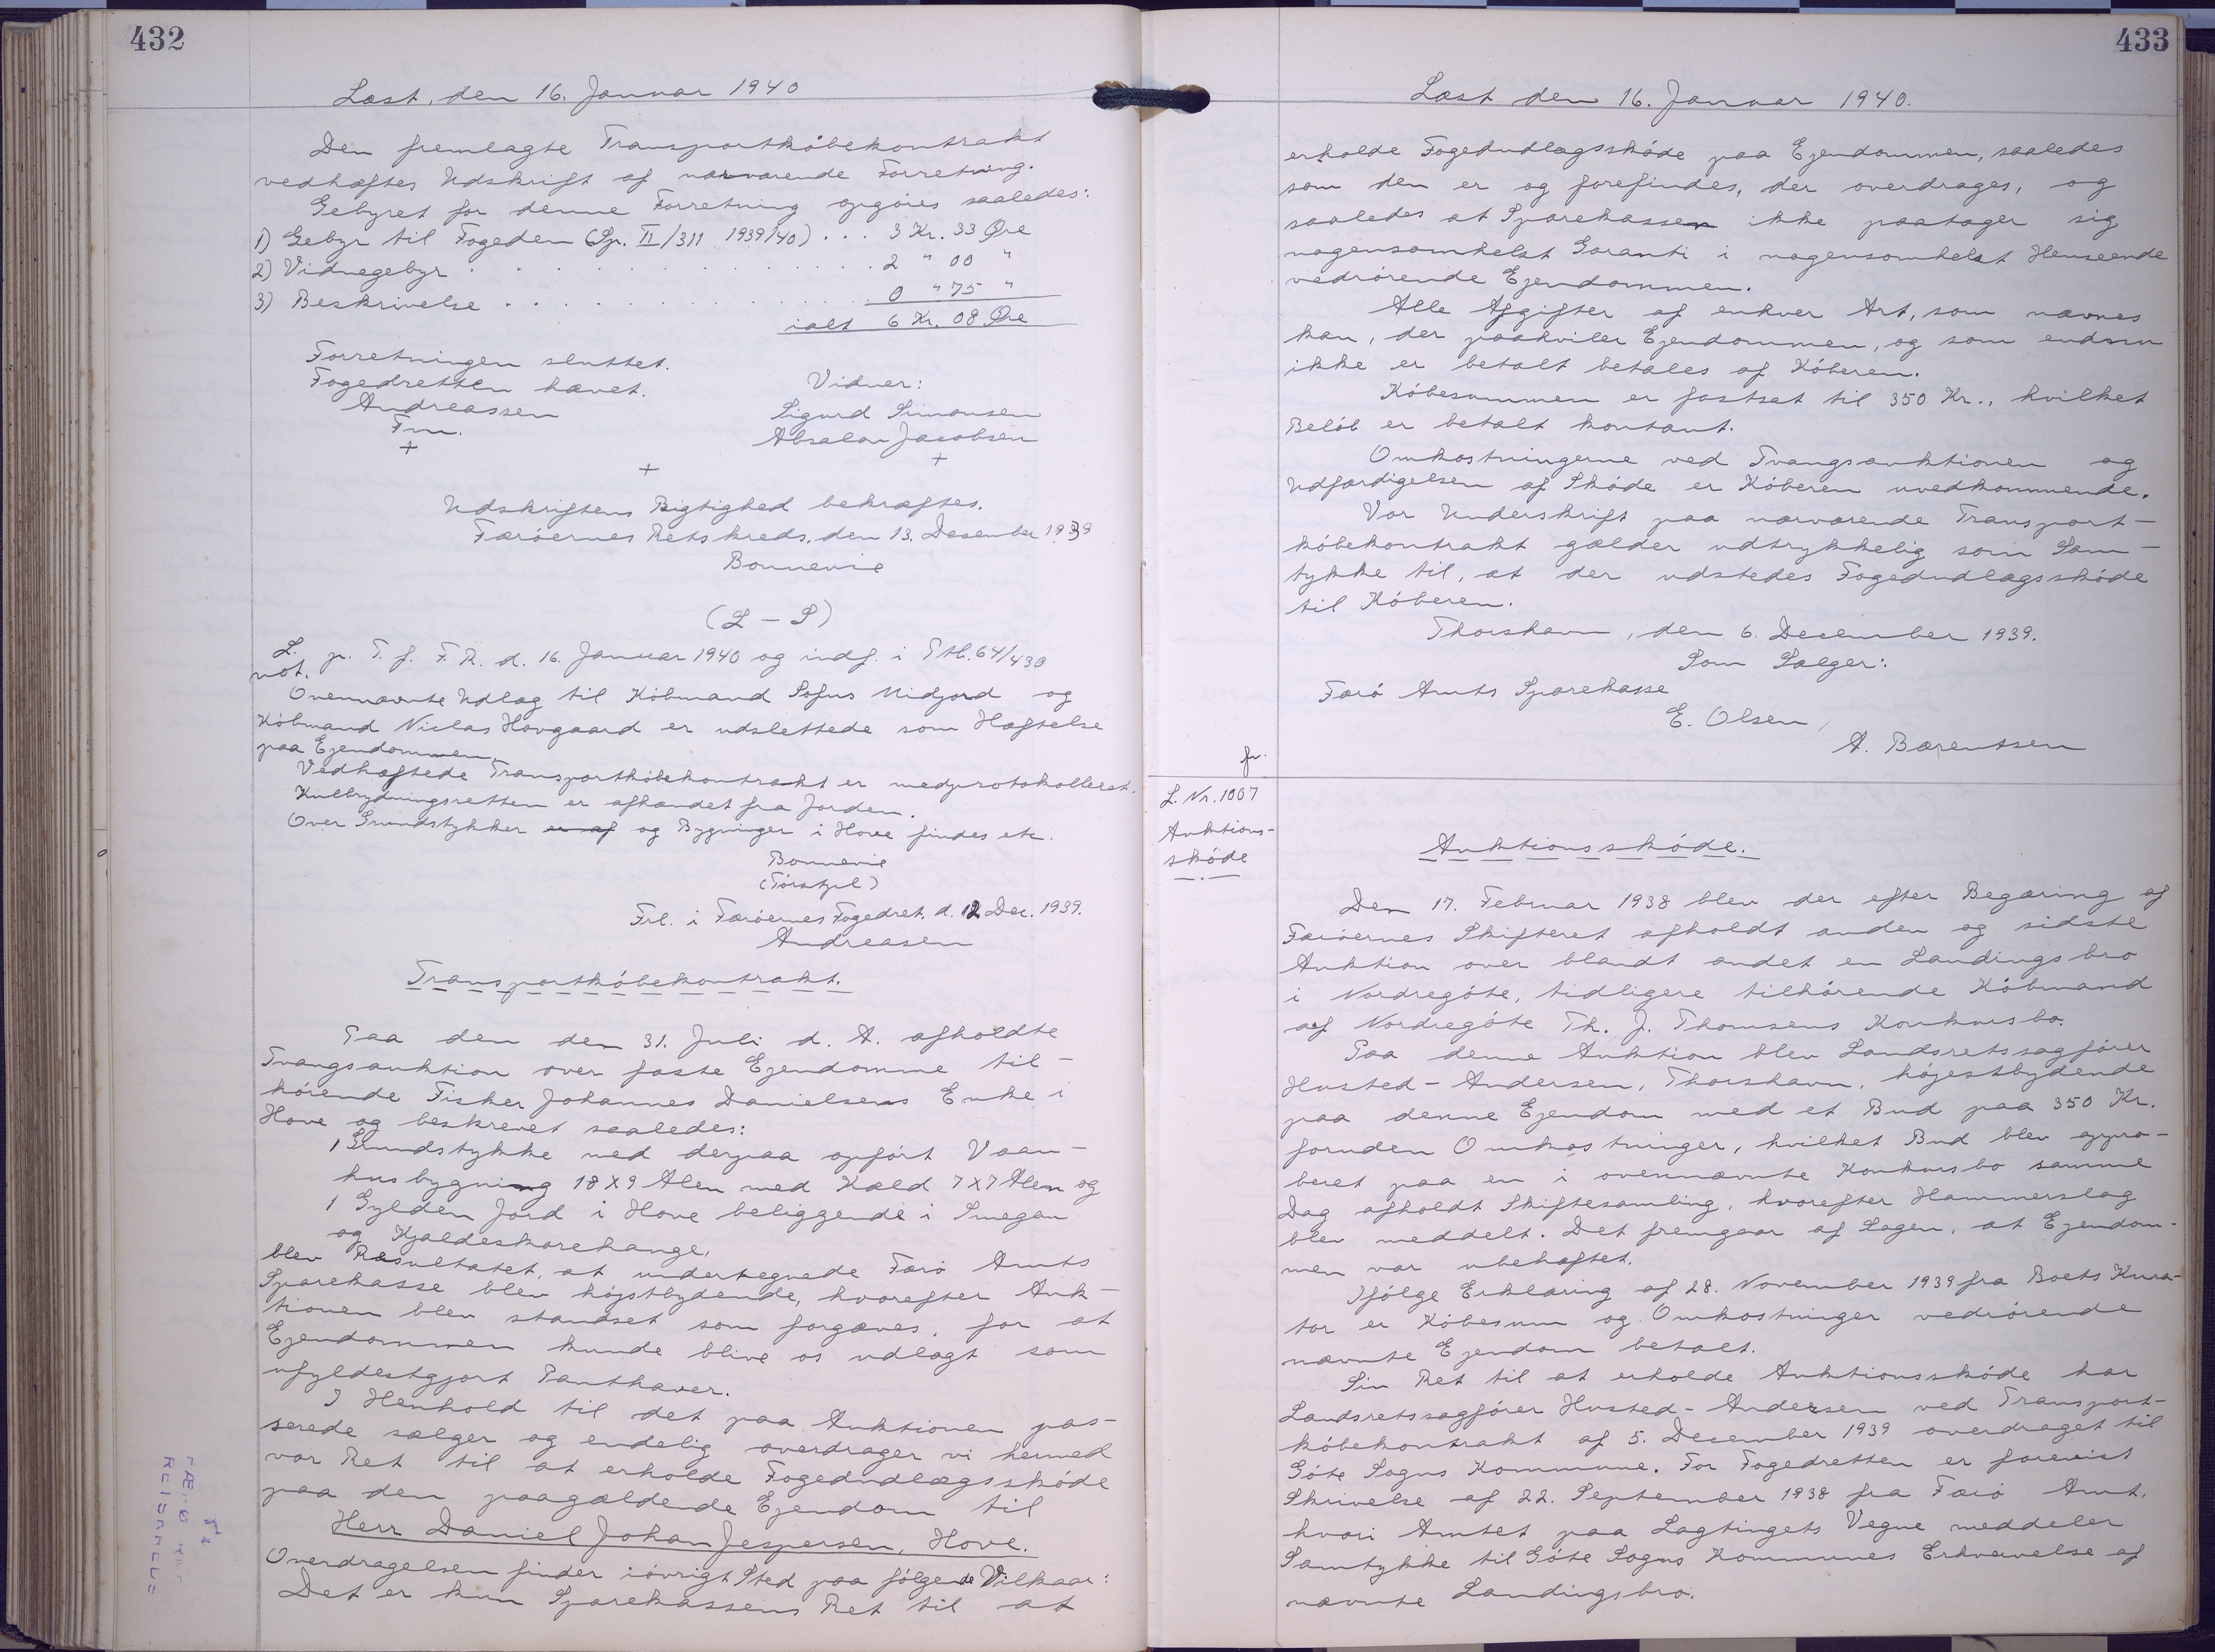 432
Læst, den 16. Januar 1940
Den fremlagte Transportkóbekontrakt
vedhæftes Udskrift af nærværende Forretning.
Gebyret for denne Forretning opgóres saaledes:
1) Gebyr til Fogeden (Sp. II/311 1939/40) . . . 3 Kr. 33 Øre
2) Vidnegebyr . . . . . . . . . . . . . . 2 " 00 "
3) Beskrivelse . . . . . . . . . . . . . . 0 " 75 "
ialt 6 Kr. 08 Øre
Forretningen sluttet.
Fogedretten hævet. Vidner:
Andreassen Sigurd Simonsen
Fm. Absalon Jacobsen
+ + +
Udskriftens Rigtighed bekræftes.
Færóernes Retskreds, den 13. December 1939
Bonnevie
(L – S)
L. p. T. f. F. R. d. 16. Januar 1940 og indf. i Ptb. 64/430
not.
Ovennævnte Udlæg til Kóbmand Sofus Midjord og
Kóbmand Niclas Hovgaard er udslettede som Hæftelse
paa Ejendommen
Vedhæftede Transportkóbekontrakt er medprotokolleret.
Kulbrydningsretten er afhændet fra Jorden.
Over Grundstykker er af og Bygninger i Hove findes etc.
Bonnevie
(Tórátjel)
Frl. i Færóernes Fogedret, d. 12 Dec. 1939.
Andreasen
Transportkóbekontrakt.
Paa den den 31. Juli d. A. afholdte
Tvangsauktion over faste Ejendomme til-
hórende Fisker Johannes Danielsens Enke i
Hove og beskrevet saaledes:
1 Grundstykke med derpaa opfórt Vaan-
husbygning 18 x 9 Alen med Kæld 7 x 7 Alen og
1 Gylden Jord i Hove beliggende i Smegan
og Kjaldeskorehange,
blev Resultatet, at undertegnede Færó Amts
Sparekasse blev hójstbydende, hvorefter Auk-
tionen blev standset som forgæves, for at
Ejendommen kunde blive os udlagt som
ufyldestgjort Panthaver.
I Henhold til det paa Auktionen pas-
serede sælger og endelig overdrager vi hermed
vor Ret til at erholde Fogedudlægsskóde
paa den paagældende Ejendom til
Herr Daniel Johan Jespersen, Hove.
Overdragelsen finder ióvrigt Sted paa fólgende Vilkaar:
Det er kun Sparekassens Ret til at
433
Læst den 16. Januar 1940.
erholde Fogedudlægsskóde paa Ejendommen, saaledes
som den er og forefindes, der overdrages, og
saaledes at Sparekassen ikke paatager sig
nogensomhelst Garanti i nogensomhelst Henseende
vedrórende Ejendommen.
Alle Afgifter af enhver Art, som nævnes
kan, der paahviler Ejendommen, og som endnu
ikke er betalt betales af Kóberen.
Kóbesummen er fastsat til 350 Kr., hvilket
Belób er betalt kontant.
Omkostningerne ved Tvangsauktionen og
Udfærdigelsen af Skóde er Kóberen uvedkommende.
Vor Underskrift paa nærværende Transport-
kóbekontrakt gælder udtrykkelig som Sam-
tykke til, at der udstedes Fogedudlægsskóde
til Kóberen.
Thorshavn, den 6. December 1939.
Som Sælger:
Færó Amts Sparekasse
E. Olsen /
A. Bærentsen
fr.
L. Nr. 1007
Auktions-
skóde
Auktionsskóde.
Den 17. Februar 1938 blev der efter Begæring af
Færóernes Skifteret afholdt anden og sidste
Auktion over blandt andet en Landingsbro
i Nordregóte, tidligere tilhórende Kóbmand
af Nordregóte Th. J. Thomsens Konkursbo.
Paa denne Auktion blev Landsretssagfórer
Husted-Andersen, Thorshavn, hójestbydende
paa denne Ejendom med et Bud paa 350 Kr.
foruden Omkostninger, hvilket Bud blev appro-
beret paa en i ovennævnte Konkursbo samme
Dag afholdt Skiftesamling, hvorefter Hammerslag
blev meddelt. Det fremgaar af Sagen, at Ejendom-
men var ubehæftet.
Ifólge Erklæring af 28. November 1939 fra Boets Kura-
tor er Kóbesum og Omkostninger vedrórende
nævnte Ejendom betalt.
Sin Ret til at erholde Auktionsskóde har
Landsretssagfórer Husted-Andersen ved Transport-
kóbekontrakt af 5. December 1939 overdraget til
Góte Sogns Kommune. For Fogedretten er forevist
Skrivelse af 22. September 1938 fra Færó Amt,
hvori Amtet paa Lagtingets Vegne meddeler
Samtykke til Góte Sogns Kommunes Erhvervelse af
nævnte Landingsbro.